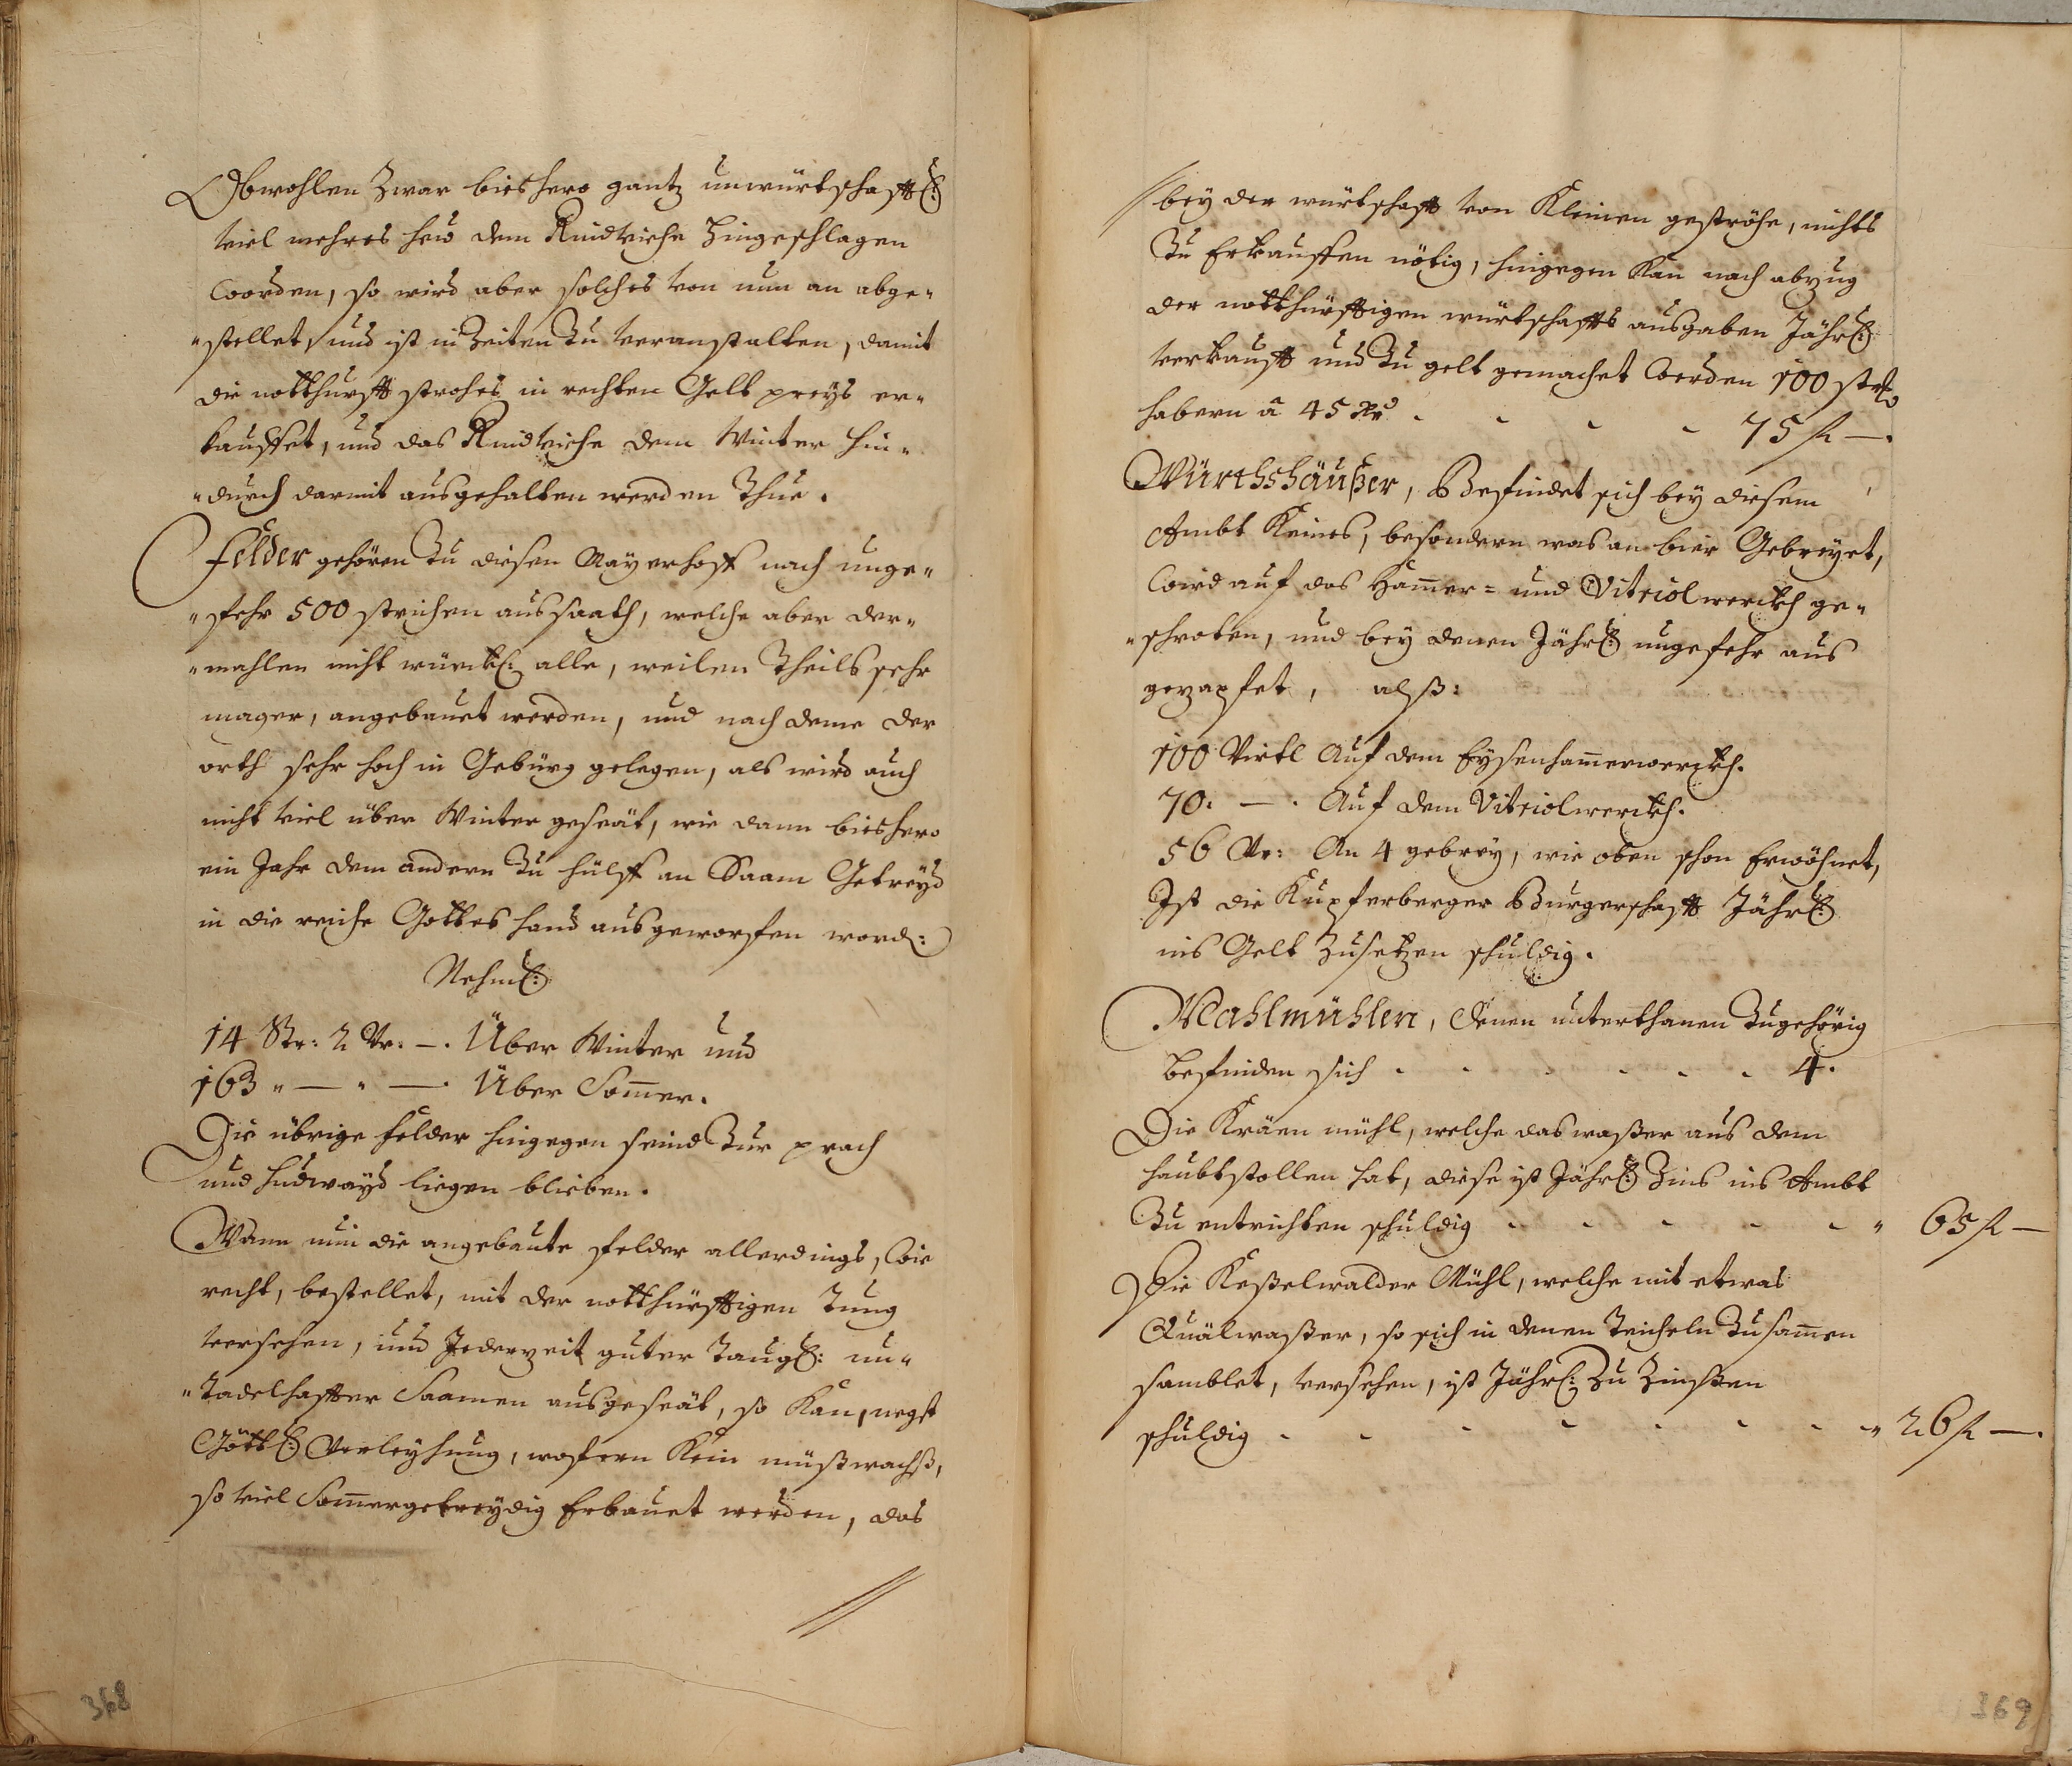 Obwohlen Zwar bieshero gantz unwürtschafftl:
viel mehres hew dem Rindviehe Hingeschlagen
worden, so wird aber solches von nun an abge„
„stellet, und ist in Zeiten Zu veranstalten, damit
die notthurfft strohes in rechten Gelt preyß er„
kauffet, und das Rindviehe dem Winter hin„
„durch darmit ausgehalten werden Thue.
Felder gehören Zu diesen Mayerhoff nach unge„
„fehr 500 strichen aussaath, welche aber der„
„mahlen nicht würckl: alle, weilen Theils sehr
mager, angebauet werden, und nach deme der
orth sehr hoch in Gebürg gelegen, als wird auch
nicht viel über Winter geseät, wie dann bieshero
ein Jahr dem andern Zu hülff an Saam Getreyd
in die reiche Gottes hand ausgeworffen word:
Nehml:
14 Str: 2 Vr: —. Über Winter und
163 „ — „ —. Über Som̄er.
Die übrige felder hingegen seind Zur prach
und hudwayd liegen blieben.
Wann nun die angebaute felder allerdings, wie
recht, bestellet, mit der notthürfftigen Tung
versehen, und Jederzeit guter Taugl: un„
„Tadelhaffter Saamen ausgeseät, so Kan, negst
Göttl: Verleyhung, wofern Kein müßwachß,
so viel Som̄ergetreydig Erbauet werden, das
//
368
// bey der würtschafft von Kleinen geströhe, nichts
Zu Erkauffen nötig, hingegen Kan nach abzug
der notthürfftigen würtschaffts ausgaben Jährl:
verkaufft und Zu gelt gemachet werden 100 str
habern â 45 Xr - - - - 75 fl —.
Würthshäußer, Befindet sich bey diesem
Ambt Keines, besondern was an bier Gebreyet,
wird auf das Ham̄er= und Vitriolwerckh ge„
„schroten, und bey denen Jährl: ungefehr aus
gezapfet, alß:
100 Virtl Auf dem Eysenham̄erwerckh.
70. —. Auf dem Vitriolwerckh.
56 Vr: An 4 gebrey, wie oben schon Erwöhnet,
Ist die Kupferberger Burgerschafft Jährl:
ins Gelt Zusetzen schuldig.
Mahlmühlen, denen unterthanen Zugehörig
befinden sich - - - - - 4.
Die Kräen mühl, welche das waßer aus dem
haubtstollen hat, diese ist Jährl: Zins ins Ambt
Zu entrichten schuldig - - - - - „ 65 fl —
Die Keßelwalder Mühl, welche mit etwas
Quälwaßer, so sich in denen Teicheln Zusam̄en
samblet, versehen, ist Jährl: Zu Zinßen
schuldig - - - - - - - „ 26 fl —.
369